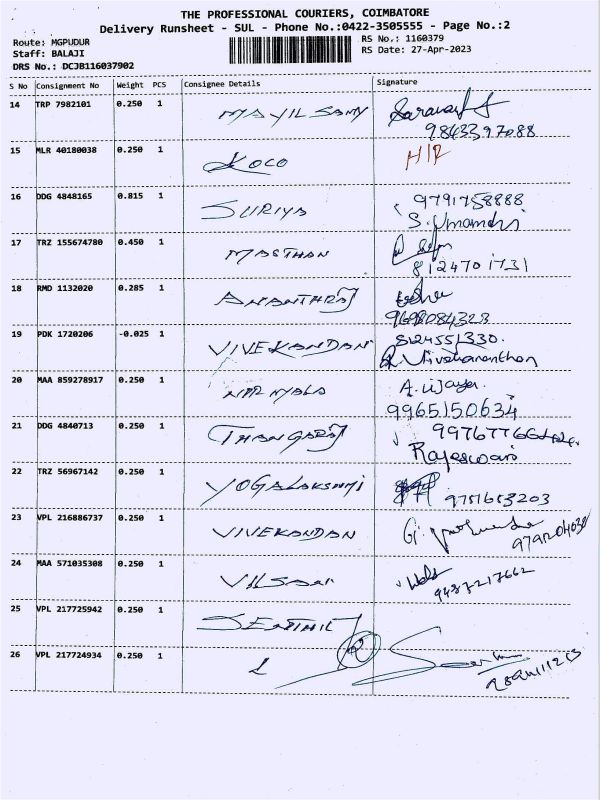 THE PROFESSIONAL COURIERS, COIMBATORE
Delivery Runsheet - SUL - Phone No.:0422-3505555 - Page No.:2
Route: MGPUDUR
RS No.: 1160379
Staff: BALAJI
RS Date: 27-Apr-2023
DRS No.: DCJB116037902
S No Consignment No Weight PCS Consignee Details Signature
14 TRP 7982101 0.250 1 MAYILSAMY
9843397088
15 MLR 40180038 0.250 1 KOCO
16 DDG 4848165 0.815 1 SURIYA 9791758888
17 TRZ 155674780 0.450 1 MASTHAN
8124701731
18 RMD 1132020 0.285 1 ANANTHRAJ
9698084323
19 PDK 1720206 -0.025 1 VIVEKANDAN 8124551330.
20 MAA 859278917 0.250 1 A. Vijaya.
99651 50634
21 DDG 4840713 0.250 1 THANGARAJ
Rajeswari
22 TRZ 56967142 0.250 1 YOGALAKSHMI 9751653203
23 VPL 216886737 0.250 1 VIVEKANDAN
24 MAA 571035308 0.250 1
9487217662
25 VPL 217725942 0.250 1 SENTHIL
26 VPL 217724934 0.250 1